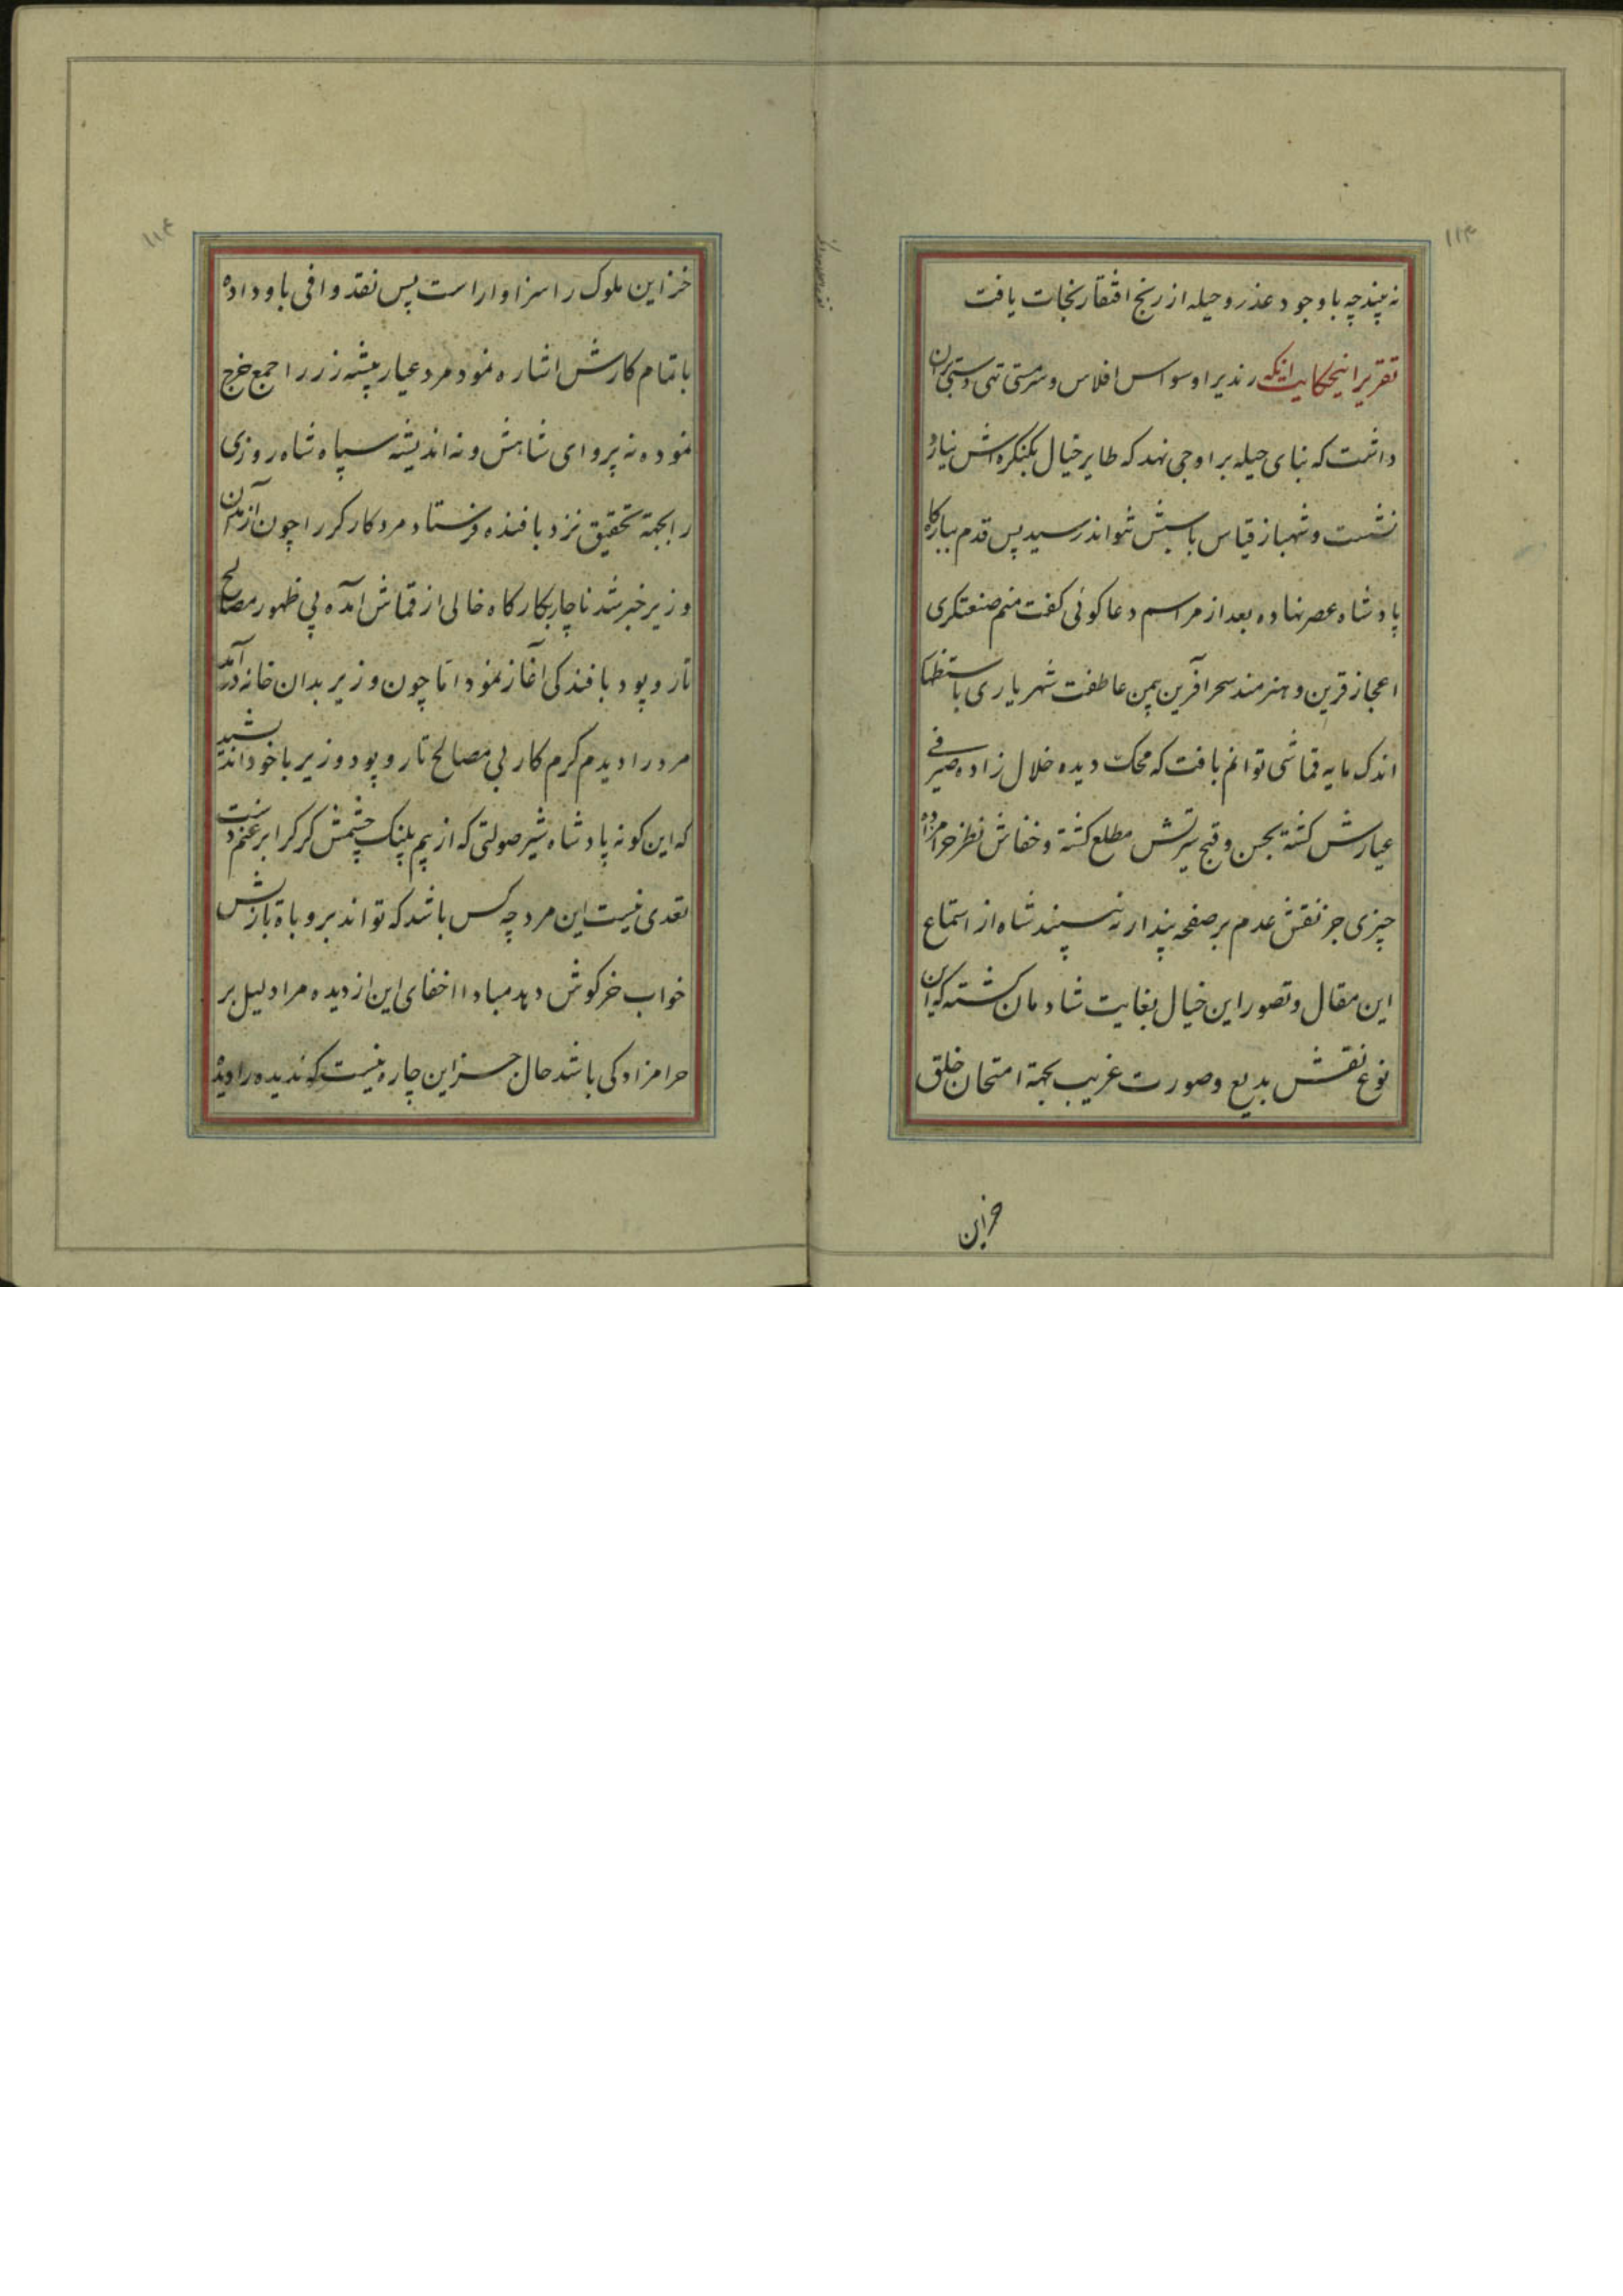 ۱۱۳
نه بیند چه باوجود عذر و حیله از رنج افتقار نجات یافت
تقریر اینحکایت اینکه رندیرا وسواس افلاس و سرمستی تهی دستی بران
داشت که بنای حیله بر اوجی نهد که طایر خیال بکنکره اش نیارد
نشست و شهباز قیاس باسبش نتواند رسید پس قدم ببارکاه
پادشاه عصر نهاده بعد از مراسم دعا کوئی کفت منم صنعتکری
اعجاز قرین و هنرمند سحر آفرین بیمن عاطفت شهریاری باستظهار
اندک مایه قماشی توانم بافت که محک دیده حلال زاده صیرفی
عیارش کشته بحسن و قبح سرتش مطلع کشته و خفاش نظر حرامزاده
چیزی جز نقش عدم بر صفحه پندار نه بیند شاه از استماع
این مقال و تصور این خیال بغایت شادمان کشته که این
نوع نقش بدیع و صورت غریب بجهة امتحان خلق
خزاین
۱۱۴
خزاین ملوک را سزاوار است پس نقد وافی باو داده
باتمام کارش اشاره نمود مرد عیار پیشه زر را جمع خرج
نموده نه پروای شاهش و نه اندیشه سپاه شاه روزی
را بجهة تحقیق نزد بافنده فرستاد مرد کارکر را چون از آمدن
وزیر خبر شد ناچار بکارکاه خالی از قماش آمده بی ظهور مصالح
تار و پود بافندکی آغاز نمود اما چون وزیر بدان خانه درآمد
مرد را دید کرم کار بی مصالح تار و پود وزیر با خود اندیشید
که این کونه پادشاه شیر صولتی که از بیم پلنک چشمش کرک را بر غنم دست
تعدی نیست این مرد چه کس باشد که تواند بروباه بازیش
خواب خرکوش دهد مبادا اخفای این از دیده مرا دلیل بر
حرامزادکی باشد حال جز این چاره نیست که ندیده را دیده